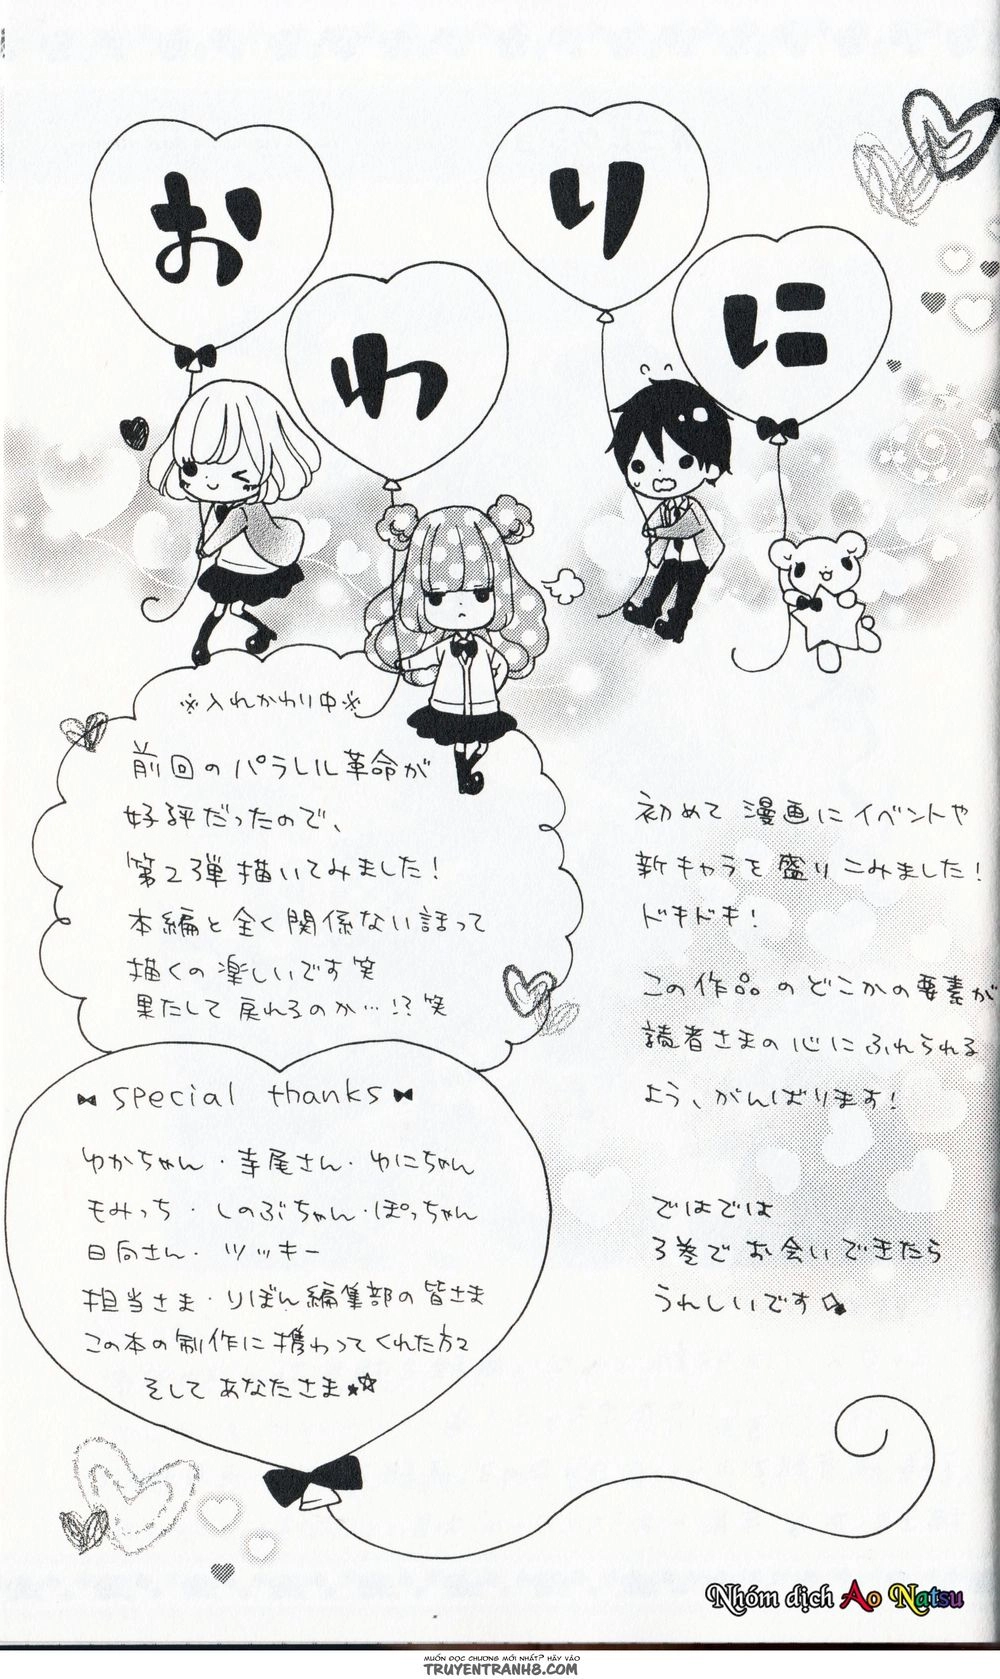 おわりに
※入れかわり中※
前回のパラレル革命が
好評だったので、
第2弾描いてみました!
本編と全く関係ない話って
描くの楽しいです笑
果たして戻れるのか…!?笑
初めて漫画にイベントや
新キャラを盛りこみました!
ドキドキ!
この作品のどこかの要素が
読者さまの心にふれられる
よう、がんばります!
ではでは
3巻でお会いできたら
うれしいです
special thanks
ゆかちゃん・寺尾さん・ゆにちゃん
もみっち・しのぶちゃん・ぽっちゃん
日向さん・ツッキー
担当さま・りぼん編集部の皆さま
この本の制作に携わってくれた方々
そしてあなたさま★☆
Nhóm dịch Ao Natsu
MUỐN ĐỌC CHƯƠNG MỚI NHẤT? HÃY VÀO
TRUYENTRANH8.COM